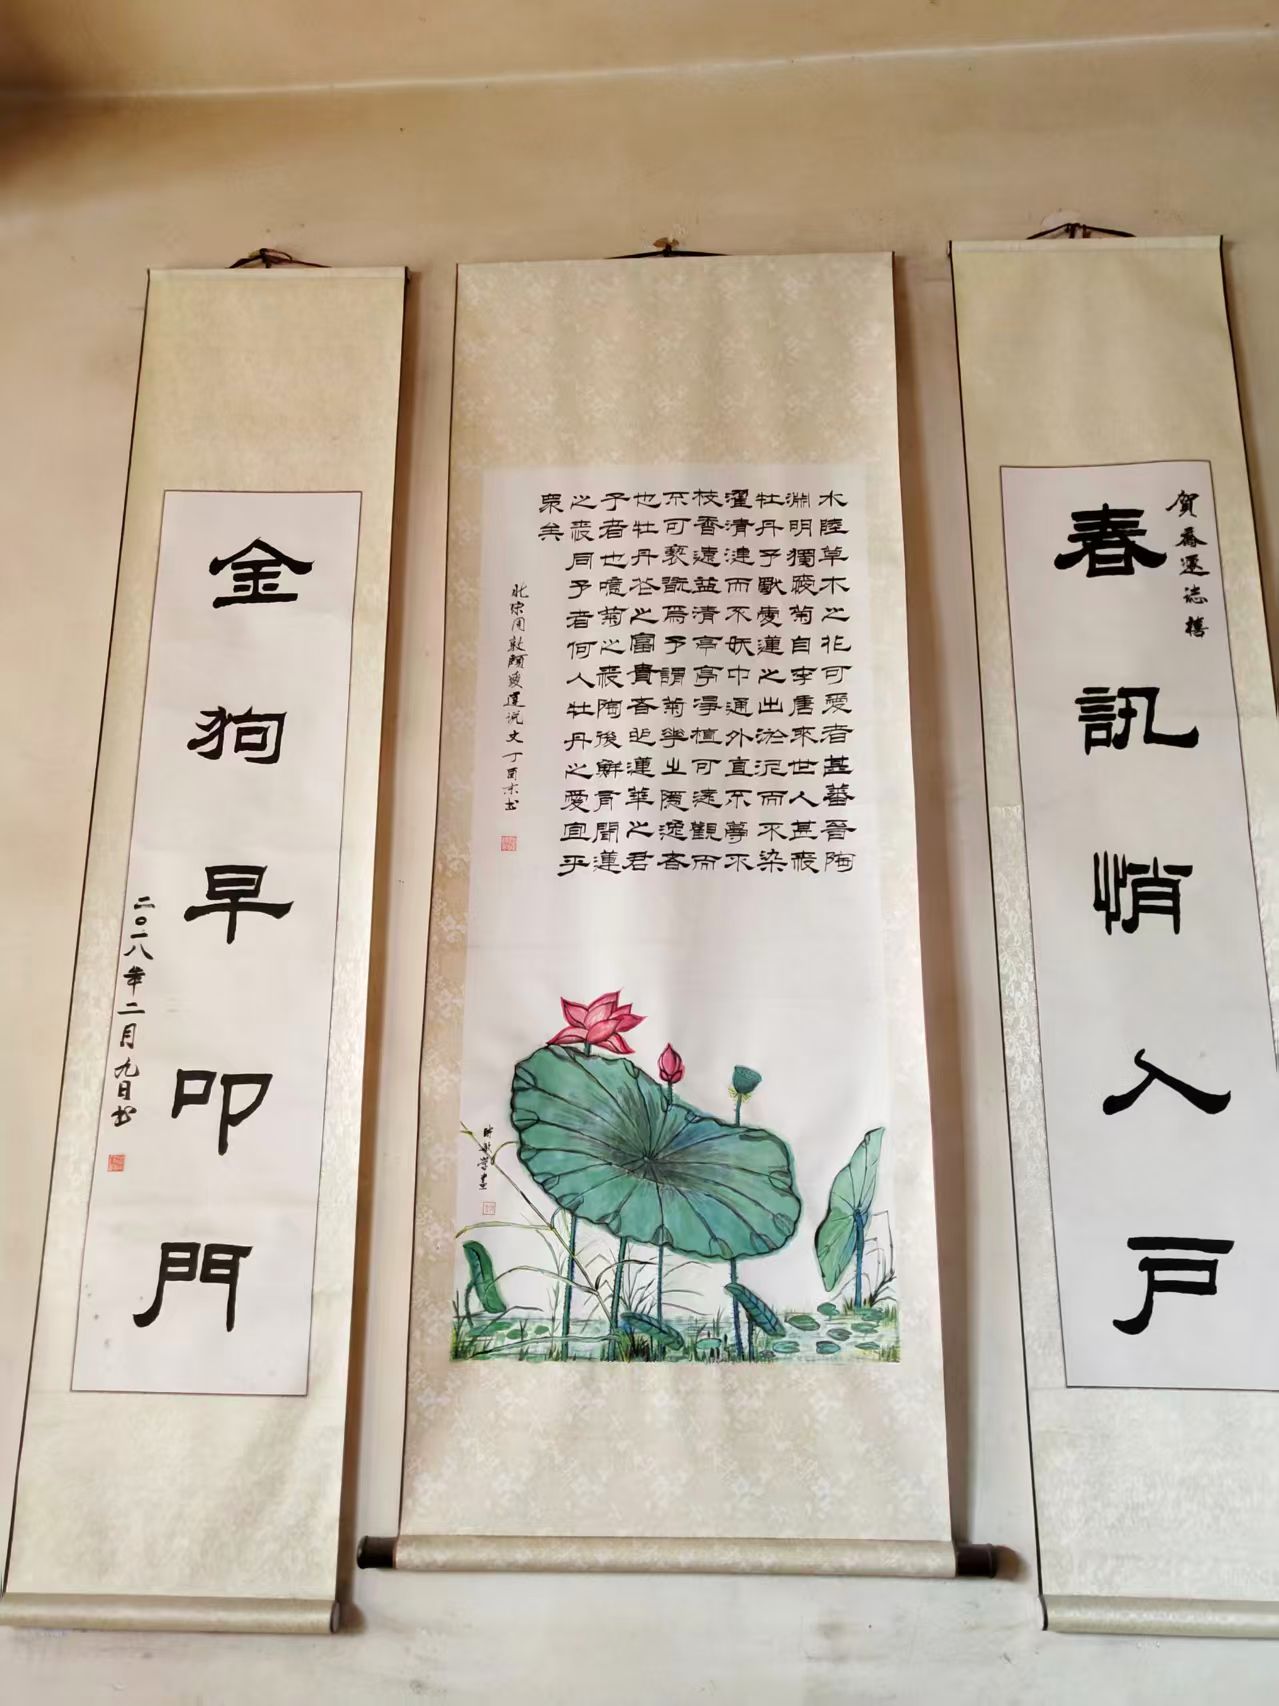 賀春迎志禧
春訊悄入戸
水陸草木之花可愛者甚蕃晉陶
淵明獨愛菊自李唐來世人甚愛
牡丹予獸愛蓮之出淤泥而不染
濯清漣而不妖中通外直不蔓不
枝香遠益清亭亭淨植可遠觀而
不可褻翫焉予謂菊華之隱逸者
也牡丹花之富貴者也蓮華之君
子者也噫菊之愛陶後鮮有聞蓮
之愛同予者何人牡丹之愛宜乎
眾矣
北宋周敦頤愛蓮說文丁酉末书
學畫
金狗早叩門
二〇一八年二月九日书